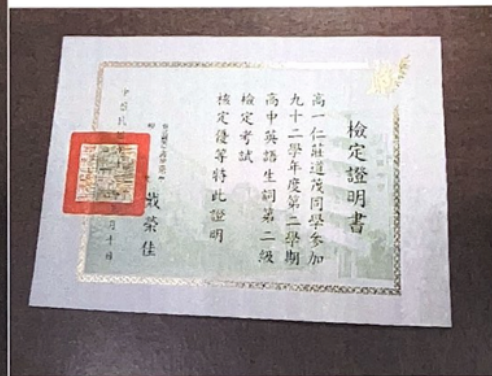 檢定證明書
高一仁莊道茂同學參加
九十二學年度第二學期
高中英語生詞第二級
檢定考試
檢定優等特此證明
榮佳
中華民國
月十日